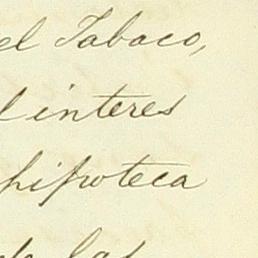 el Tabaco,
l interes
hipoteca
de las